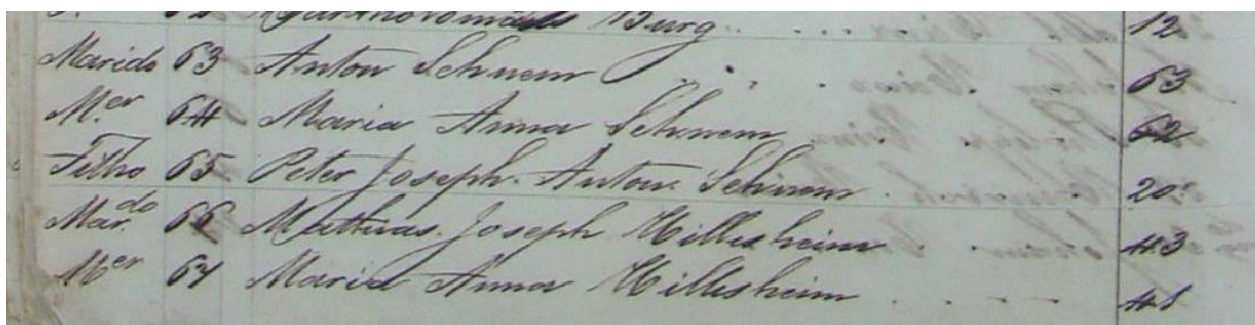 62 Bartholomäus Burg . . . . . 12
Marido 63 Anton Schnem . . . . 63
Mer 64 Maria Anna Schnem 62
Filho 65 Peter Joseph Anton Schnem . 20
Mardo 66 Mathias Joseph Hillesheim . . 43
Mer 67 Maria Anna Hillesheim . . . . 41